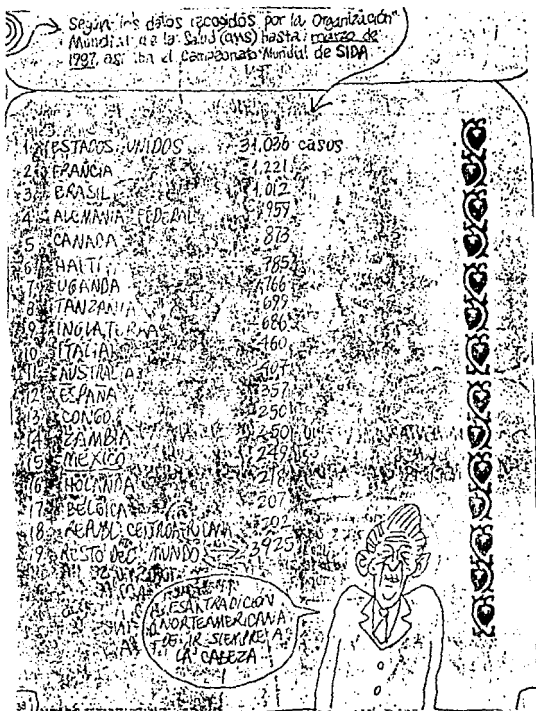 Según los datos recogidos por la Organización
Mundial de la Salud (OMS) hasta marzo de
1987, así iba el Campeonato Mundial de SIDA
1 ESTADOS UNIDOS 31.036 casos
2 FRANCIA 1.221
3 BRASIL 1.012
4 ALEMANIA FEDERAL 959
5 CANADA 873
6 HAITI 785
7 UGANDA 766
8 TANZANIA 699
9 INGLATERRA 686
10 ITALIA 460
11 AUSTRALIA
12 ESPAÑA 357
13 CONGO 250
14 ZAMBIA 250
15 MEXICO 249
16 HOLANDA 218
17 BELGICA 207
18 REPUBL. CENTROAFRICANA 202
19 RESTO DEL MUNDO 3925
ESA TRADICION
NORTEAMERICANA
DE IR SIEMPRE A
LA CABEZA